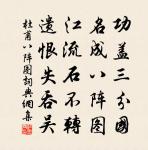 功蓋三分國
名成八陣圖
江流石不轉
遺恨失吞吳
杜甫八陣圖詞典網集